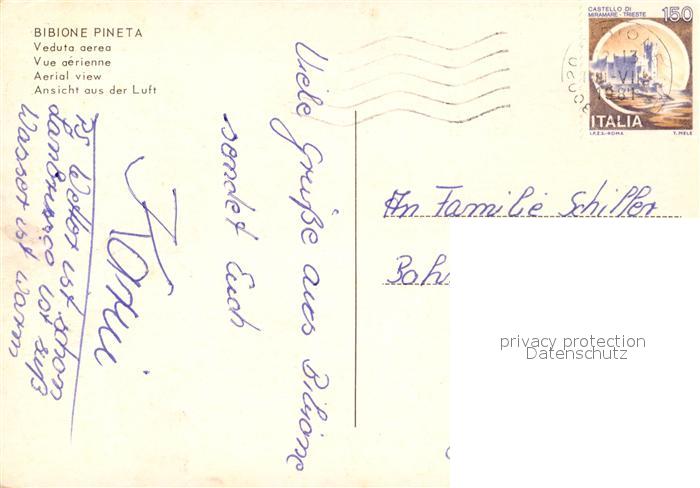 BIBIONE PINETA
Veduta aerea
Vue aérienne
Aerial view
Ansicht aus der Luft
CASTELLO DI
MIRAMARE - TRIESTE
150
ITALIA
I.P.Z.S.-ROMA
T. MELE
1981
Viele Grüße aus Bibione
sendet Euch
PS Wetter ist schön
Lambrusco ist süß
Wasser ist warm
An Familie Schiller
privacy protection
Datenschutz